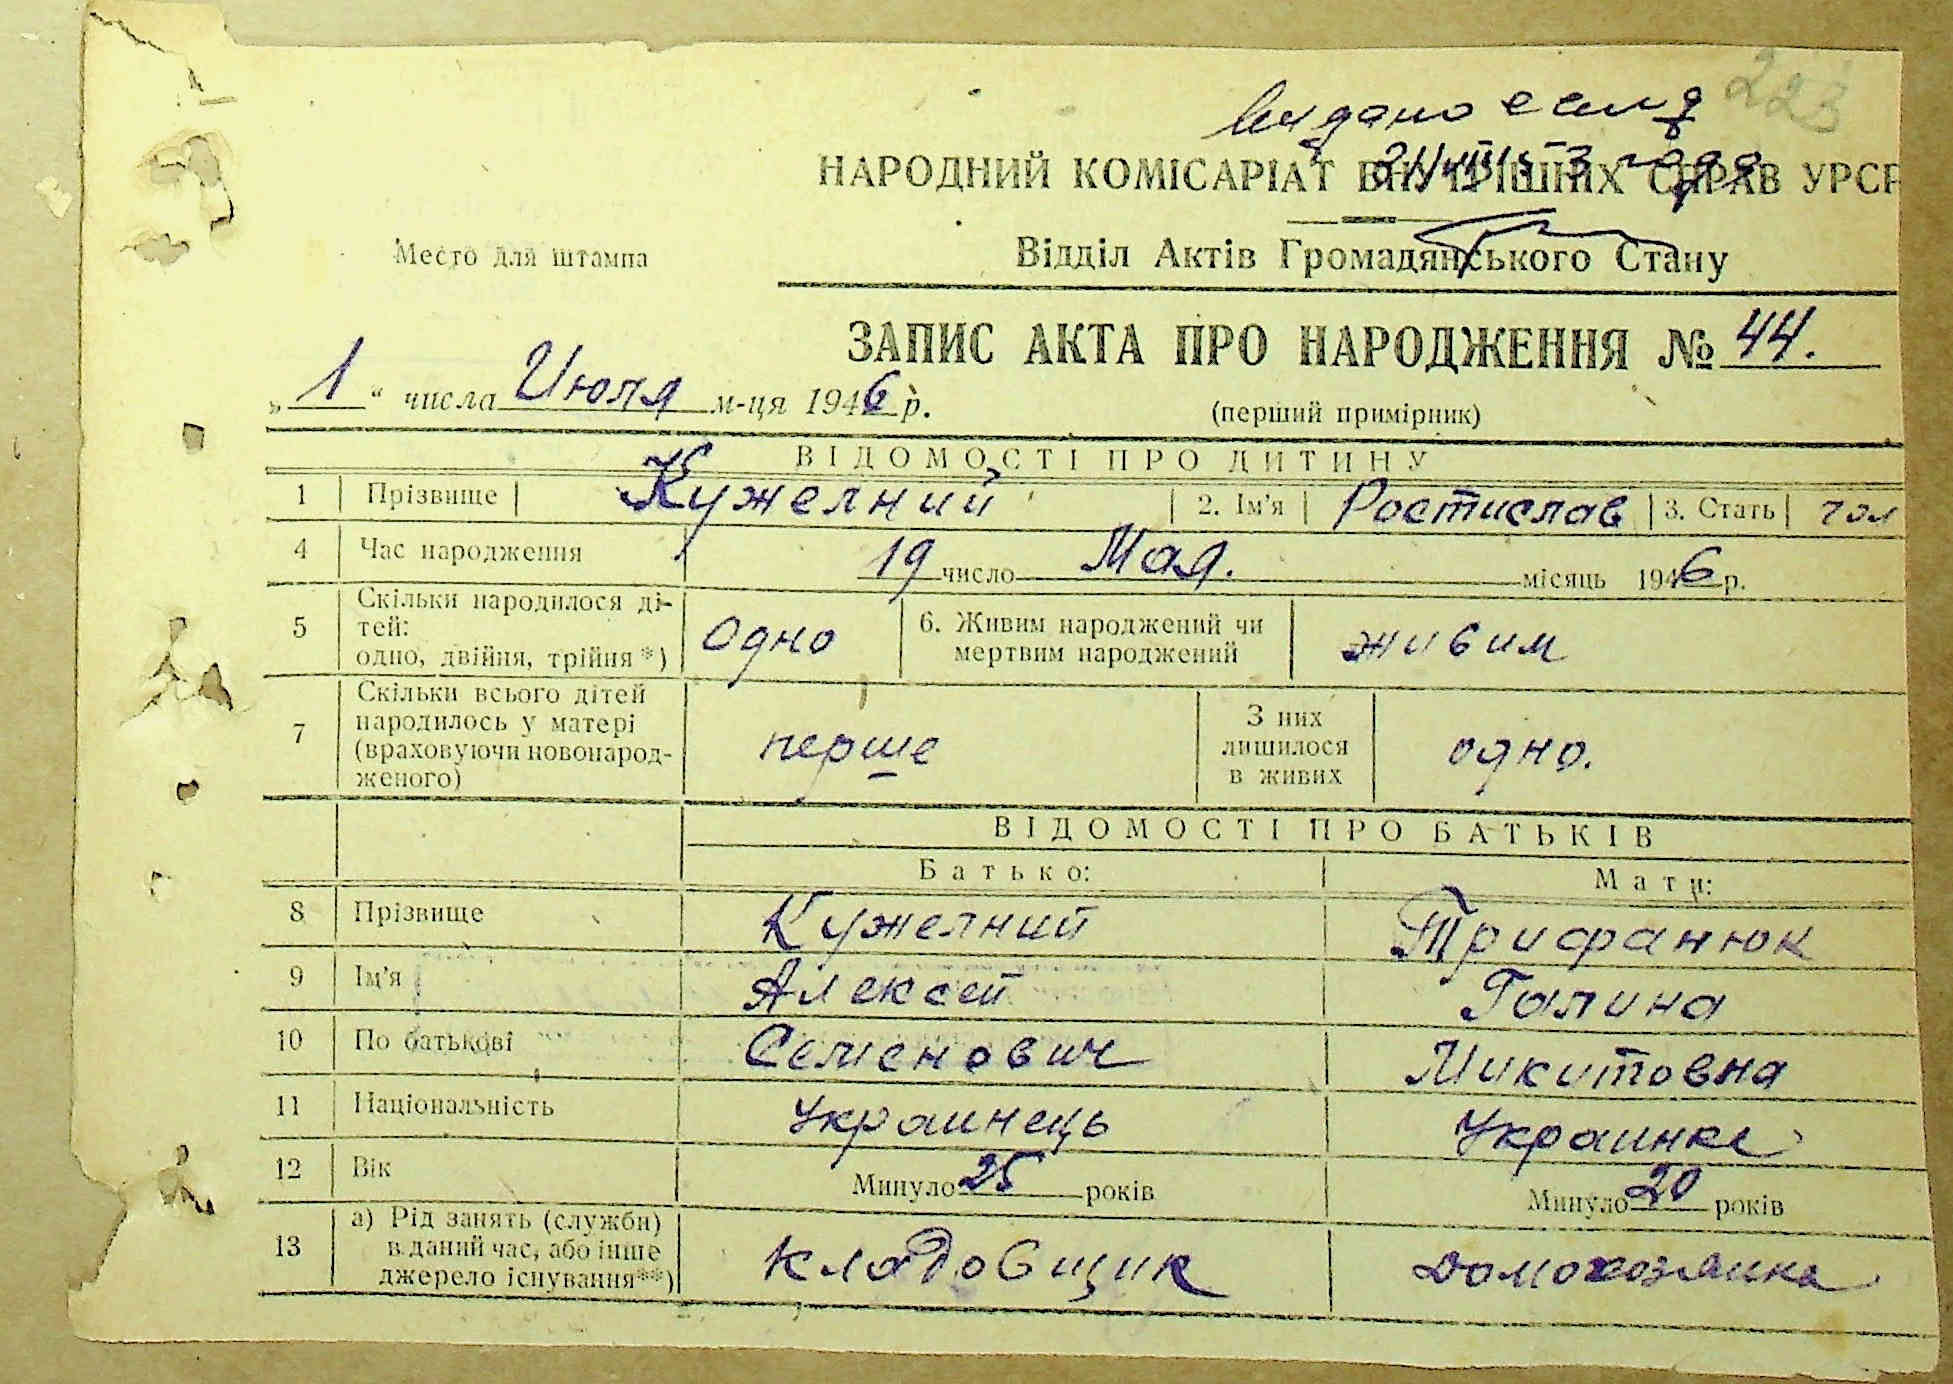 223
Видано
НАРОДНИЙ КОМІСАРІАТ ВНУТРІШНІХ СПРАВ УРСР
Место для штампа
Відділ Актів Громадянського Стану
ЗАПИС АКТА ПРО НАРОДЖЕННЯ № 44.
„ 1 “ числа Июля м-ця 1946 р.
(перший примірник)
ВІДОМОСТІ ПРО ДИТИНУ
1 Прізвище Кужелний 2. Ім'я Ростислав 3. Стать чол
4 Час народження 19 число Мая. місяць 1946 р.
5 Скільки народилося ді-
тей:
одно, двійня, трійня*) одно 6. Живим народжений чи
мертвим народжений живим
7 Скільки всього дітей
народилось у матері
(враховуючи новонарод-
женого) перше З них
лишилося
в живих одно.
ВІДОМОСТІ ПРО БАТЬКІВ
Батько: Мати:
8 Прізвище Кужелний Трифанюк
9 Ім'я Алексей Галина
10 По батькові Семенович Микитовна
11 Національність Украинець Украинка
12 Вік Минуло 25 років Минуло 20 років
13 а) Рід занять (служби)
в даний час, або інше
джерело існування**) Кладовщик Домохозяика